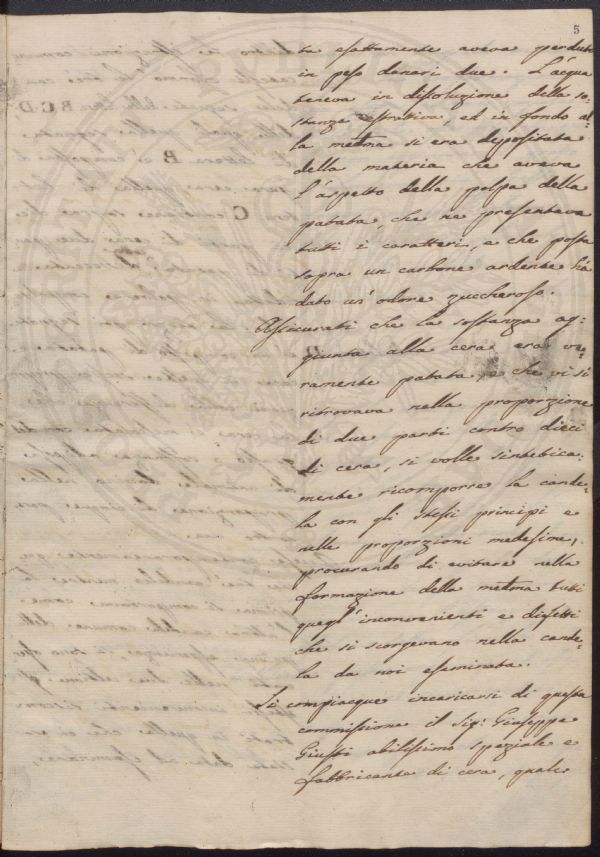 5
ta esattamente aveva perduto
in peso denari due. L'acqua
teneva in dissoluzione della so-
stanza estrattiva, ed in fondo al-
la medma si era depositata
della materia che aveva
l'aspetto della polpa della
patata, che ne presentava
tutti i caratteri, e che posta
sopra un carbone ardente hà
dato un' odore zuccheroso.
Assicurati che la sostanza ag-
giunta alla cera era ve-
ramente patata, e che vi si
ritrovava nella proporzione
di due parti contro dieci
di cera, si volle sintetica-
mente ricomporre la cande-
la con gli stessi principi e
nelle proporzioni medesime,
procurando di evitare nella
formazione della medma tutti
quegl' inconvenienti e difetti
che si scorgevano nella cande-
la da noi esaminata.
Si compiacque incaricarsi di questa
commissione il Sigr Giuseppe
Giusti abilissimo speziale e
fabbricante di cera, quale